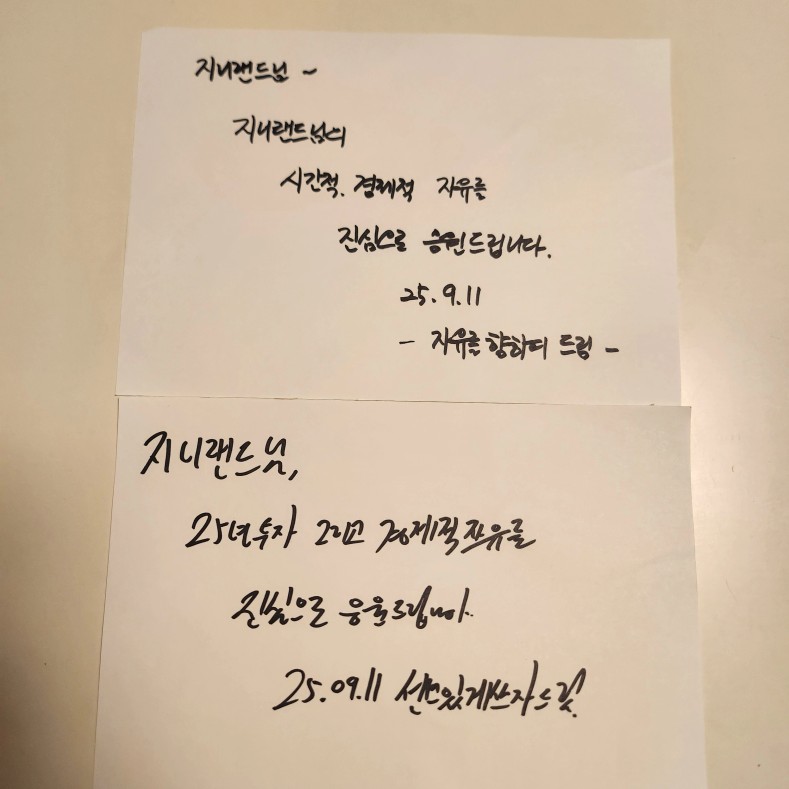 지니랜드님 ~
지니랜드님의
시간적. 경제적 자유를
진심으로 응원드립니다.
25.9.11
- 자유를 향하여 드림 -
지니랜드님,
25년 투자 그리고 경제적 자유를
진심으로 응원드립니다.
25.09.11 센스있게쓰자드림.